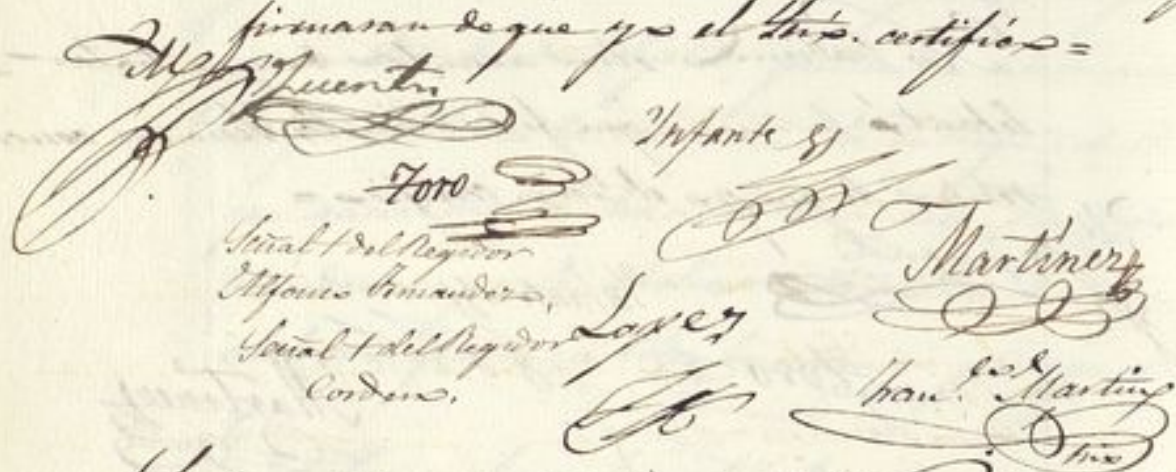 firmaran de que yo el Srio. certifico=
Fuentes
Infante
Toro
Martínez
Señal + del Regidor
Alfonso Fernandez.
Lopez
Señal + del Regidor
Cordero.
Fran.co Martinez
Srio